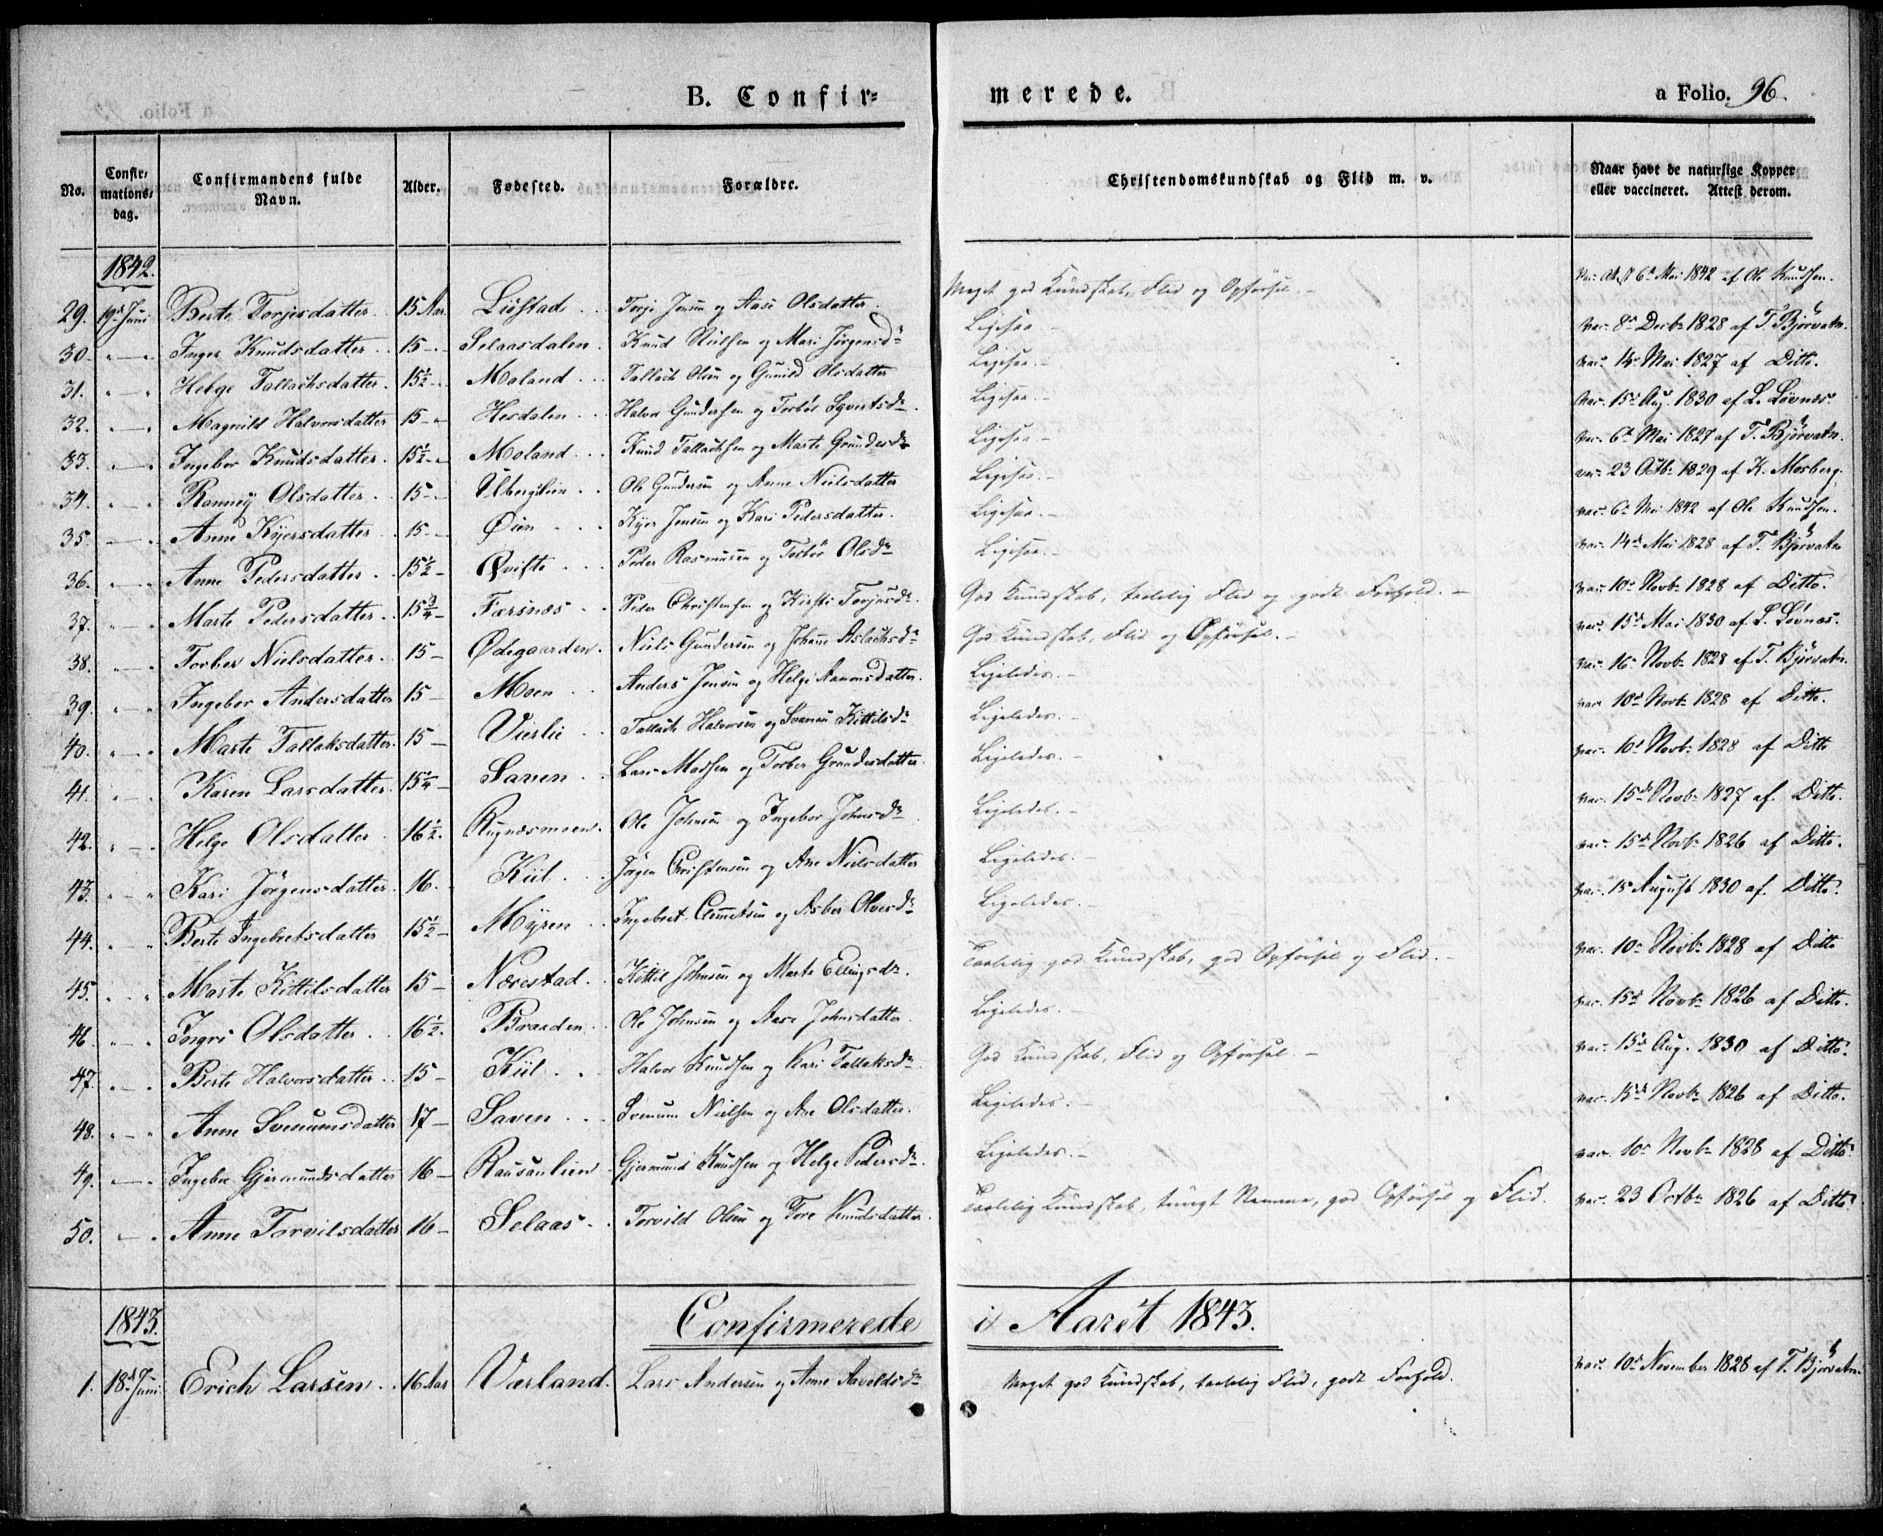 B. Confir=
merede.
a Folio. 96.
No.
Confir= mations= dag.
Confirmandens fulde Navn.
Alder.
Fødested.
Forældre.
Christendomskundskab og Flid m. v.
Naar havt de naturlige Kopper eller vaccineret. Attest derom.
1842.
29. 19d Juni Berte Torjesdatter 15 Aar. Liøstad Torje Jensen og Aase Olsdatter. Meget god Kundskab, Flid og Opførsel. Vac. Att. 6d Mai 1842 af Ole Knudsen.
30. " — " Inger Knudsdatter 15 — Selaasdalen Knud Nielsen og Mari Jørgensdr Ligesaa. — vac. 8d Decbr 1828 af T. Bjørvatn.
31. " — " Helge Tallachsdatter 15½ — Moland Tallach Olsen og Gunild Olsdatter Ligesaa. — vac. 14 Mai 1827 af Ditto.
32. " — " Magnild Halvorsdatter 15 — Hesdalen Halvor Gundersen og Torbør Sgvertsdr. Ligesaa. — vac. 15d Aug. 1830 af L. Løvnes.
33. " — " Ingebor Knudsdatter 15½ — Moland Knud Tallachsen og Marte Grundesdr Ligesaa. — vac. 6d Mai 1827 af T. Bjørvatn.
34. " — " Ranney Olsdatter 15 — Ubergslien Ole Gundersen og Anne Nielsdatter Ligesaa. — vac. 23 Octbr 1829 af K. Mosberg.
35. " — " Anne Kjersdatter 15 — Øien Kjer Jensen og Kari Pedersdatter. Ligesaa. — vac. 6d Mai 1842 af Ole Knudsen.
36. " — " Anne Pedersdatter 15½ — Qvifte Peder Rasmusen og Torbør Olsdr Ligesaa. — vac. 14d Mai 1828 af T. Bjørvatn
37. " — " Marte Pedersdatter 15¾ — Færsnæs Peder Christensen og Kirsti Torjusdr. God Kundskab, taalelig Flid og godt Forhold. — vac. 10d Novbr 1828 af Ditto.
38. " — " Torber Nielsdatter 15 — Ødegaarden. Niels Gundersen og Johanne Aslachsdr God Kundskab, Flid og Opførsel. — vac. 15d Mai 1830 af L. Løvnæs.
39. " — " Ingebor Andersdatter 15 — Moen Anders Jensen og Helge Aanonsdatter. Ligeledes. — vac. 16 Novbr 1828 af T. Bjørvatn.
40. " — " Marte Tallaksdatter. 15 — Vierlie Tallach Halvorsen og Svanau Kittilsdr Ligeledes. — vac. 10d Novbr 1828 af Ditto.
41. " — " Karen Larsdatter. 15¼ — Saven Lars Madsen og Torber Grundesdatter. Ligeledes. — vac. 10d Novbr 1828 af Ditto
42. " — " Helge Olsdatter 16½. Rugnæsmoen. Ole Johnsen og Ingebor Johnsdr Ligeledes. — vac. 15d Novbr 1827 af. Ditto.
43. " — " Kari Jørgensdatter. 16. Kiil Jørgen Christensen og Ane Nielsdatter Ligeledes. — vac. 15d Novbr 1826 af Ditto.
44. " — " Berte Ingebretsdatter 15½ — Myren Ingebret Clemetsen og Asber Olvesdr Ligeledes. — vac. 15 August 1830 af. Ditto.
45. " — " Marte Kittilsdatter 15 — Nærestad. Kittil Johnsen og Marte Ellingsdr. Taalelig god Kundskab, god Opførsel og Flid. — vac. 10d Novbr 1828 af Ditto
46. " — " Ingri Olsdatter 16½. Braaden. Ole Johnsen og Aase Johnsdatter. Ligeledes. — vac. 15d Novbr 1826 af Ditto.
47. " — " Berte Halvorsdatter 15 — Kiil Halvor Knudsen og Kari Tallaksdr. God Kundskab, Flid og Opførsel. — vac. 15d Aug. 1830 af Ditto.
48. " — " Anne Svenumsdatter 17 — Saven Svenum Nielsen og Ane Olsdatter. Ligeledes. — vac. 15d Novbr 1826 af Ditto.
49. " — " Ingebor Gjermundsdatter 16 — Rausanlien Gjermund Knudsen og Helge Pedersdr. Ligeledes. — vac. 10d Novbr 1828 af Ditto.
50. " — " Anne Torvilsdatter 16 — Selaas Torvild Olsen og Tore Knudsdatter. Taalelig Kundskab, tungt Nemme, god Opførsel og Flid. vac. 23 Octbr 1826 af Ditto.
1843. Confirmerede i Aaret 1843.
1. 18d Juni Erich Larsen 16 Aar Varland. Lars Andersen og Anne Aavoldsdr Meget god Kundskab, taalelig Flid, godt Forhold. vac. 10d November 1828 af T. Bjørvatn.